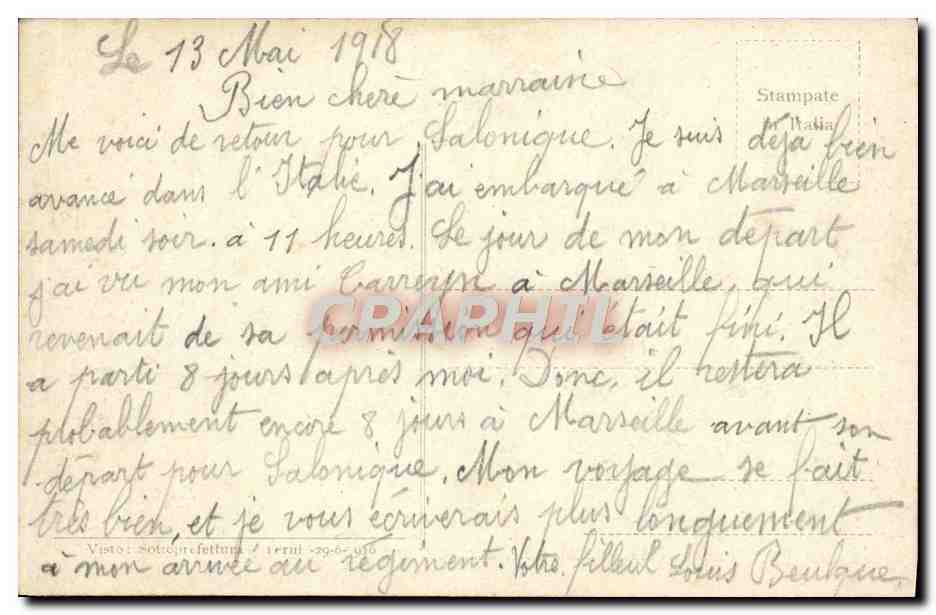 Le 13 Mai 1918
Bien chère marraine
Stampate
in Italia
Me voici de retour pour Salonique. Je suis déja bien
avancé dans l'Italie. J'ai embarqué à Marseille
samedi soir. à 11 heures. Le jour de mon départ
j'ai vu mon ami Carreyn à Marseille, qui
revenait de sa permission qui était fini. Il
a parti 8 jours après moi. Donc, il restera
probablement encore 8 jours à Marseille avant son
départ pour Salonique. Mon voyage se fait
très bien, et je vous écriverais plus longuement
Visto: Sottoprefettura Terni -29-6-916
à mon arrivée au régiment. Votre filleul Louis Beulque.
CPARPHIL